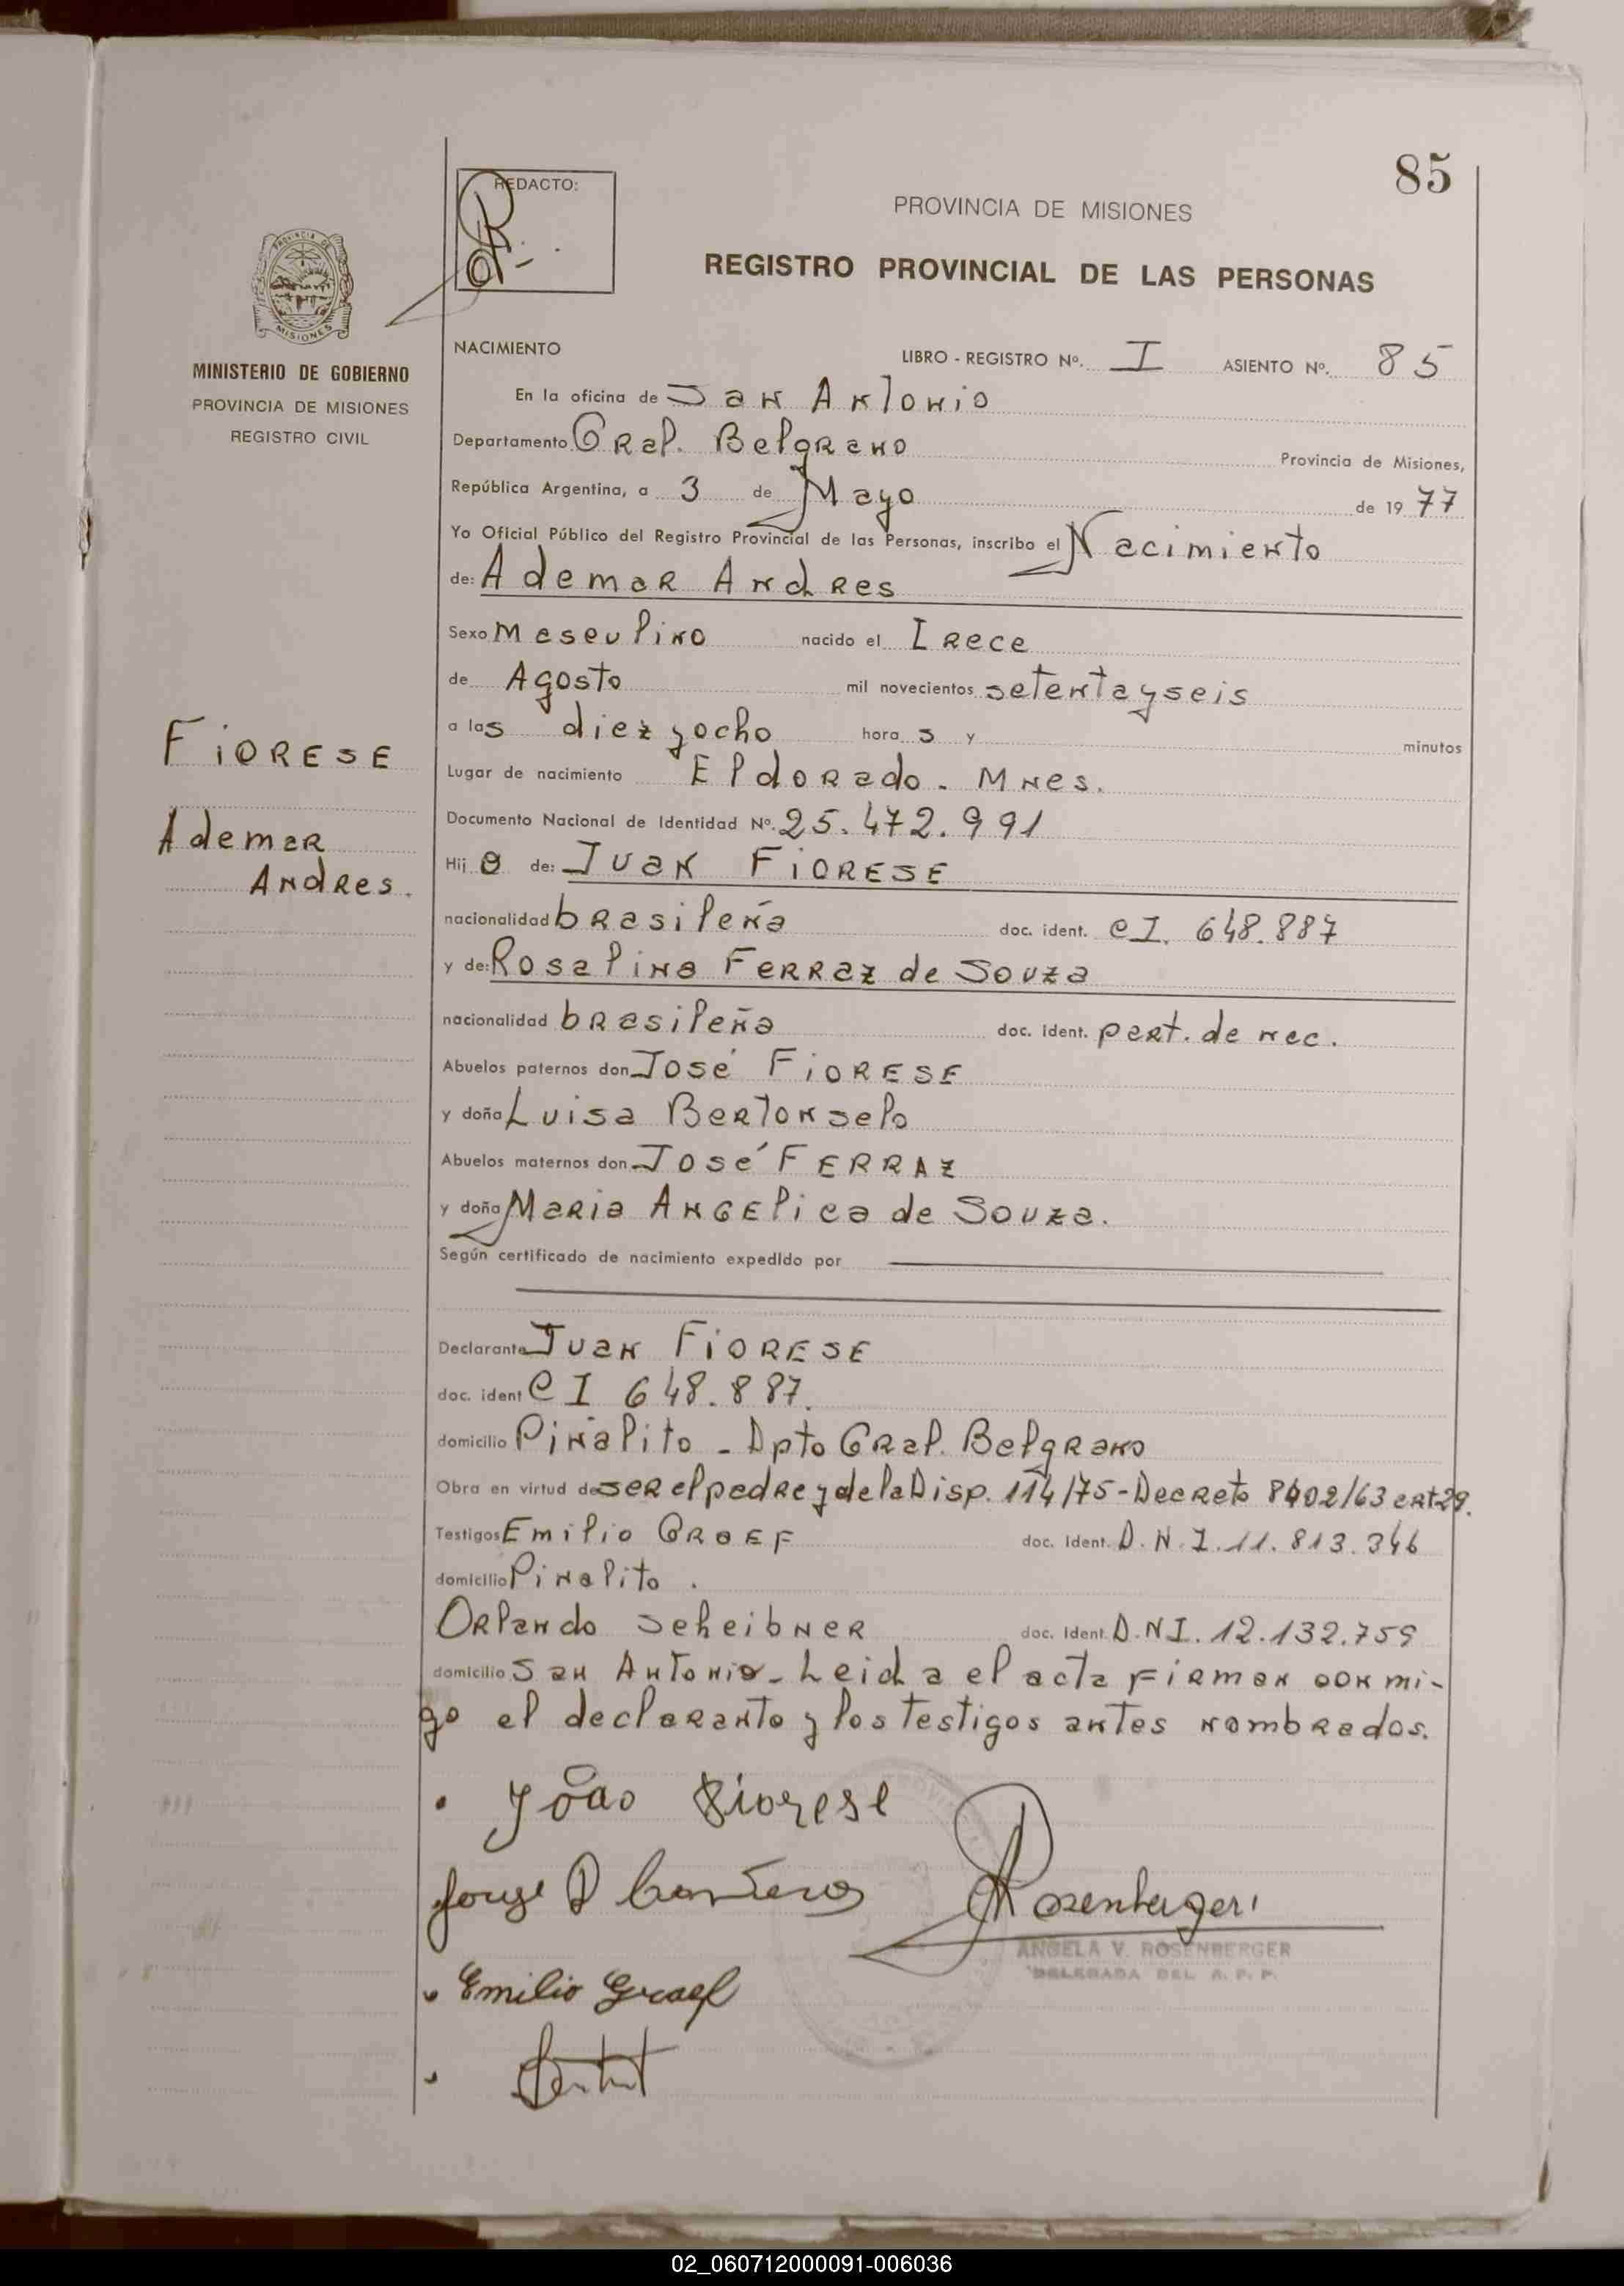 85
REDACTO:
PROVINCIA DE MISIONES
REGISTRO PROVINCIAL DE LAS PERSONAS
PROVINCIA DE
MISIONES
MINISTERIO DE GOBIERNO
PROVINCIA DE MISIONES
REGISTRO CIVIL
NACIMIENTO
LIBRO - REGISTRO Nº. I ASIENTO Nº. 85
En la oficina de San Antonio
Departamento Gral. Belgrano Provincia de Misiones,
República Argentina, a 3 de Mayo de 1977
Yo Oficial Público del Registro Provincial de las Personas, inscribo el Nacimiento
de: Ademar Andres
Sexo masculino nacido el Trece
de Agosto mil novecientos setentayseis
a las diez y ocho hora s y minutos
Lugar de nacimiento Eldorado - Mnes.
Documento Nacional de Identidad Nº. 25.472.991
Hij o de: Juan FiORESE
nacionalidad brasileña doc. ident. CI. 648.887
y de: Rosalina Ferraz de Souza
nacionalidad brasileña doc. ident. part. de nac.
Abuelos paternos don José FiORESE
y doña Luisa Bertonselo
Abuelos maternos don José FERRAZ
y doña Maria Angelica de Souza.
Según certificado de nacimiento expedido por
Declarante Juan FiORESE
doc. ident CI 648.887.
domicilio Piñalito - Dpto Gral. Belgrano
Obra en virtud de ser el padre y de la Disp. 114/75 - Decreto 8402/63 art 29.
Testigos Emilio GRAEF doc. Ident. D.N.I. 11.813.346
domicilio Piñalito.
Orlando Scheibner doc. Ident. D.NI. 12.132.759
domicilio San Antonio - Leida el acta firman conmi-
go el declarante y los testigos antes nombrados.
FiORESE
Ademar
Andres.
João Fiorese
Jorge D
Rosenberger
ANGELA V. ROSENBERGER
DELEGADA DEL R. P. P.
Emilio Graef
02_060712000091-006036